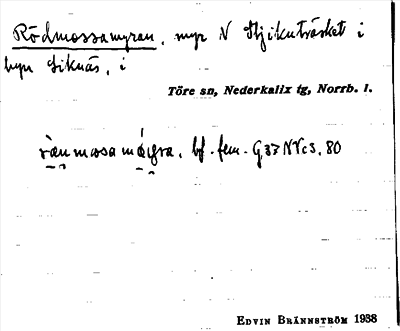 Rödmossamyran, myr N Stjikuträsket i
byn Siknäs, i
Töre sn, Nederkalix tg, Norrb. l.
bf. fem. G37NVc3, 80
EDVIN BRÄNNSTRÖM 1938